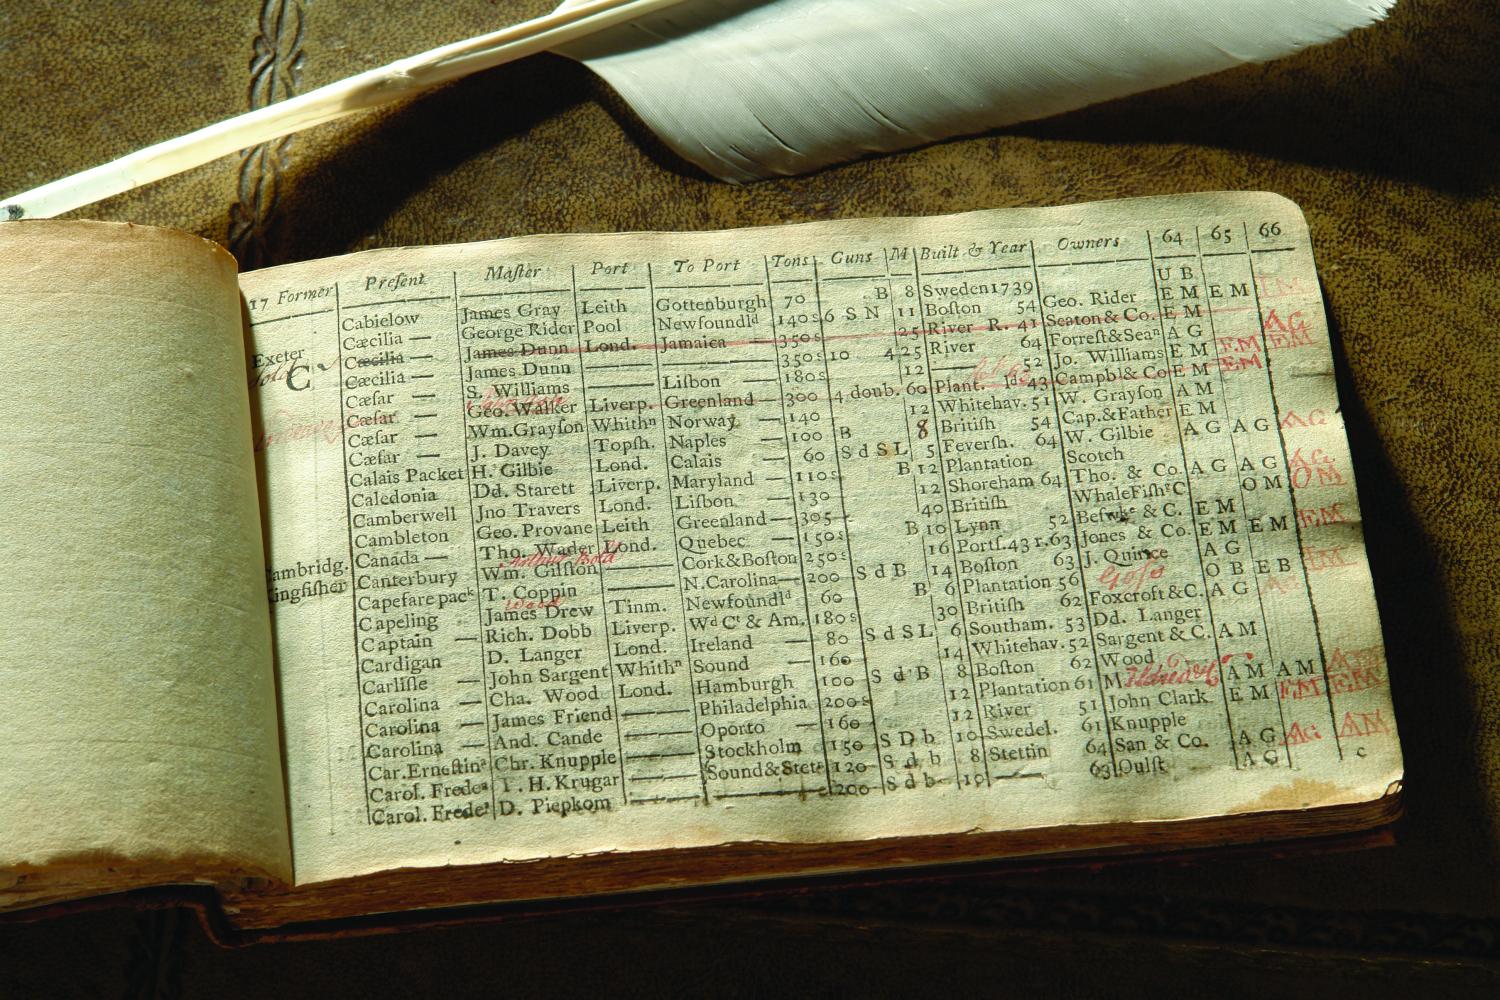 17 Former Preſent Maſter Port To Port Tons Guns M Built & Year Owners 64 65 66
Cabielow James Gray Leith Gottenburgh 70 B 8 Sweden 1739 U B
Cæcilia — George Rider Pool Newfoundlᵈ 140s 6 S N 11 Boſton 54 Geo. Rider E M E M
Exeter Cæcilia — James Dunn Lond. Jamaica — 350s 25 River R. 41 Seaton & Co. E M
C Cæcilia — James Dunn 350s 10 4 25 River 64 Forreſt&Seaⁿ A G
Cæſar — S. Williams Liſbon — 180s 12 52 Jo. Williams E M E M
Cæſar — Geo. Walker Liverp. Greenland — 300 4 doub. 60 Plant. 43 Campbl & Co E M
Cæſar — Wm. Grayſon Whithⁿ Norway — 140 12 Whitehav. 51 W. Grayſon A M
Cæſar — J. Davey Topſh. Naples — 100 B 8 Britiſh 54 Cap. & Father E M
Calais Packet H. Gilbie Lond. Calais — 60 S d S L 5 Feverſh. 64 W. Gilbie A G A G
Caledonia Dd. Starett Liverp. Maryland — 110s B 12 Plantation Scotch
Camberwell Jno Travers Lond. Liſbon — 130 12 Shoreham 64 Tho. & Co. A G A G
Cambleton Geo. Provane Leith Greenland — 305 40 Britiſh WhaleFiſhʳC O M O M
Canada — Tho. Wader Lond. Quebec — 150s B 10 Lynn 52 & C. E M
Cambridg. Canterbury Wm. Gilſton Cork & Boſton 250s 16 Portſ. 43 r. 63 Jones & Co. E M E M
Kingfiſher Capefare pacᵏ T. Coppin N. Carolina — 200 S d B 14 Boſton 63 J. Quince A G
Capeling James Drew Tinm. Newfoundlᵈ 60 B 6 Plantation 56 Goſs O B E B
Captain — Rich. Dobb Liverp. Wᵈ Cᵗ & Am. 180s 30 Britiſh 62 Foxcroft & C. A G
Cardigan D. Langer Lond. Ireland — 80 S d S L 6 Southam. 53 Dd. Langer
Carliſle — John Sargent Whithⁿ Sound — 160 14 Whitehav. 52 Sargent & C. A M
Carolina — Cha. Wood Lond. Hamburgh 100 S d B 8 Boſton 62 Wood
Carolina — James Friend Philadelphia 200s 12 Plantation 61 M A M A M
Carolina — And. Cande Oporto — 160 12 River 51 John Clark E M E M
Car. Erneſtinᵃ Chr. Knupple Stockholm 150 S D b 10 Swedel. 61 Knupple
Caroſ. Fredeᵃ T. H. Krugar Sound & Stet 120 S d b 8 Stettin 64 San & Co. A G A G A M
Carol. Fredeᵃ D. Piepkom 200 S d b 10 63 Oulſt A G c